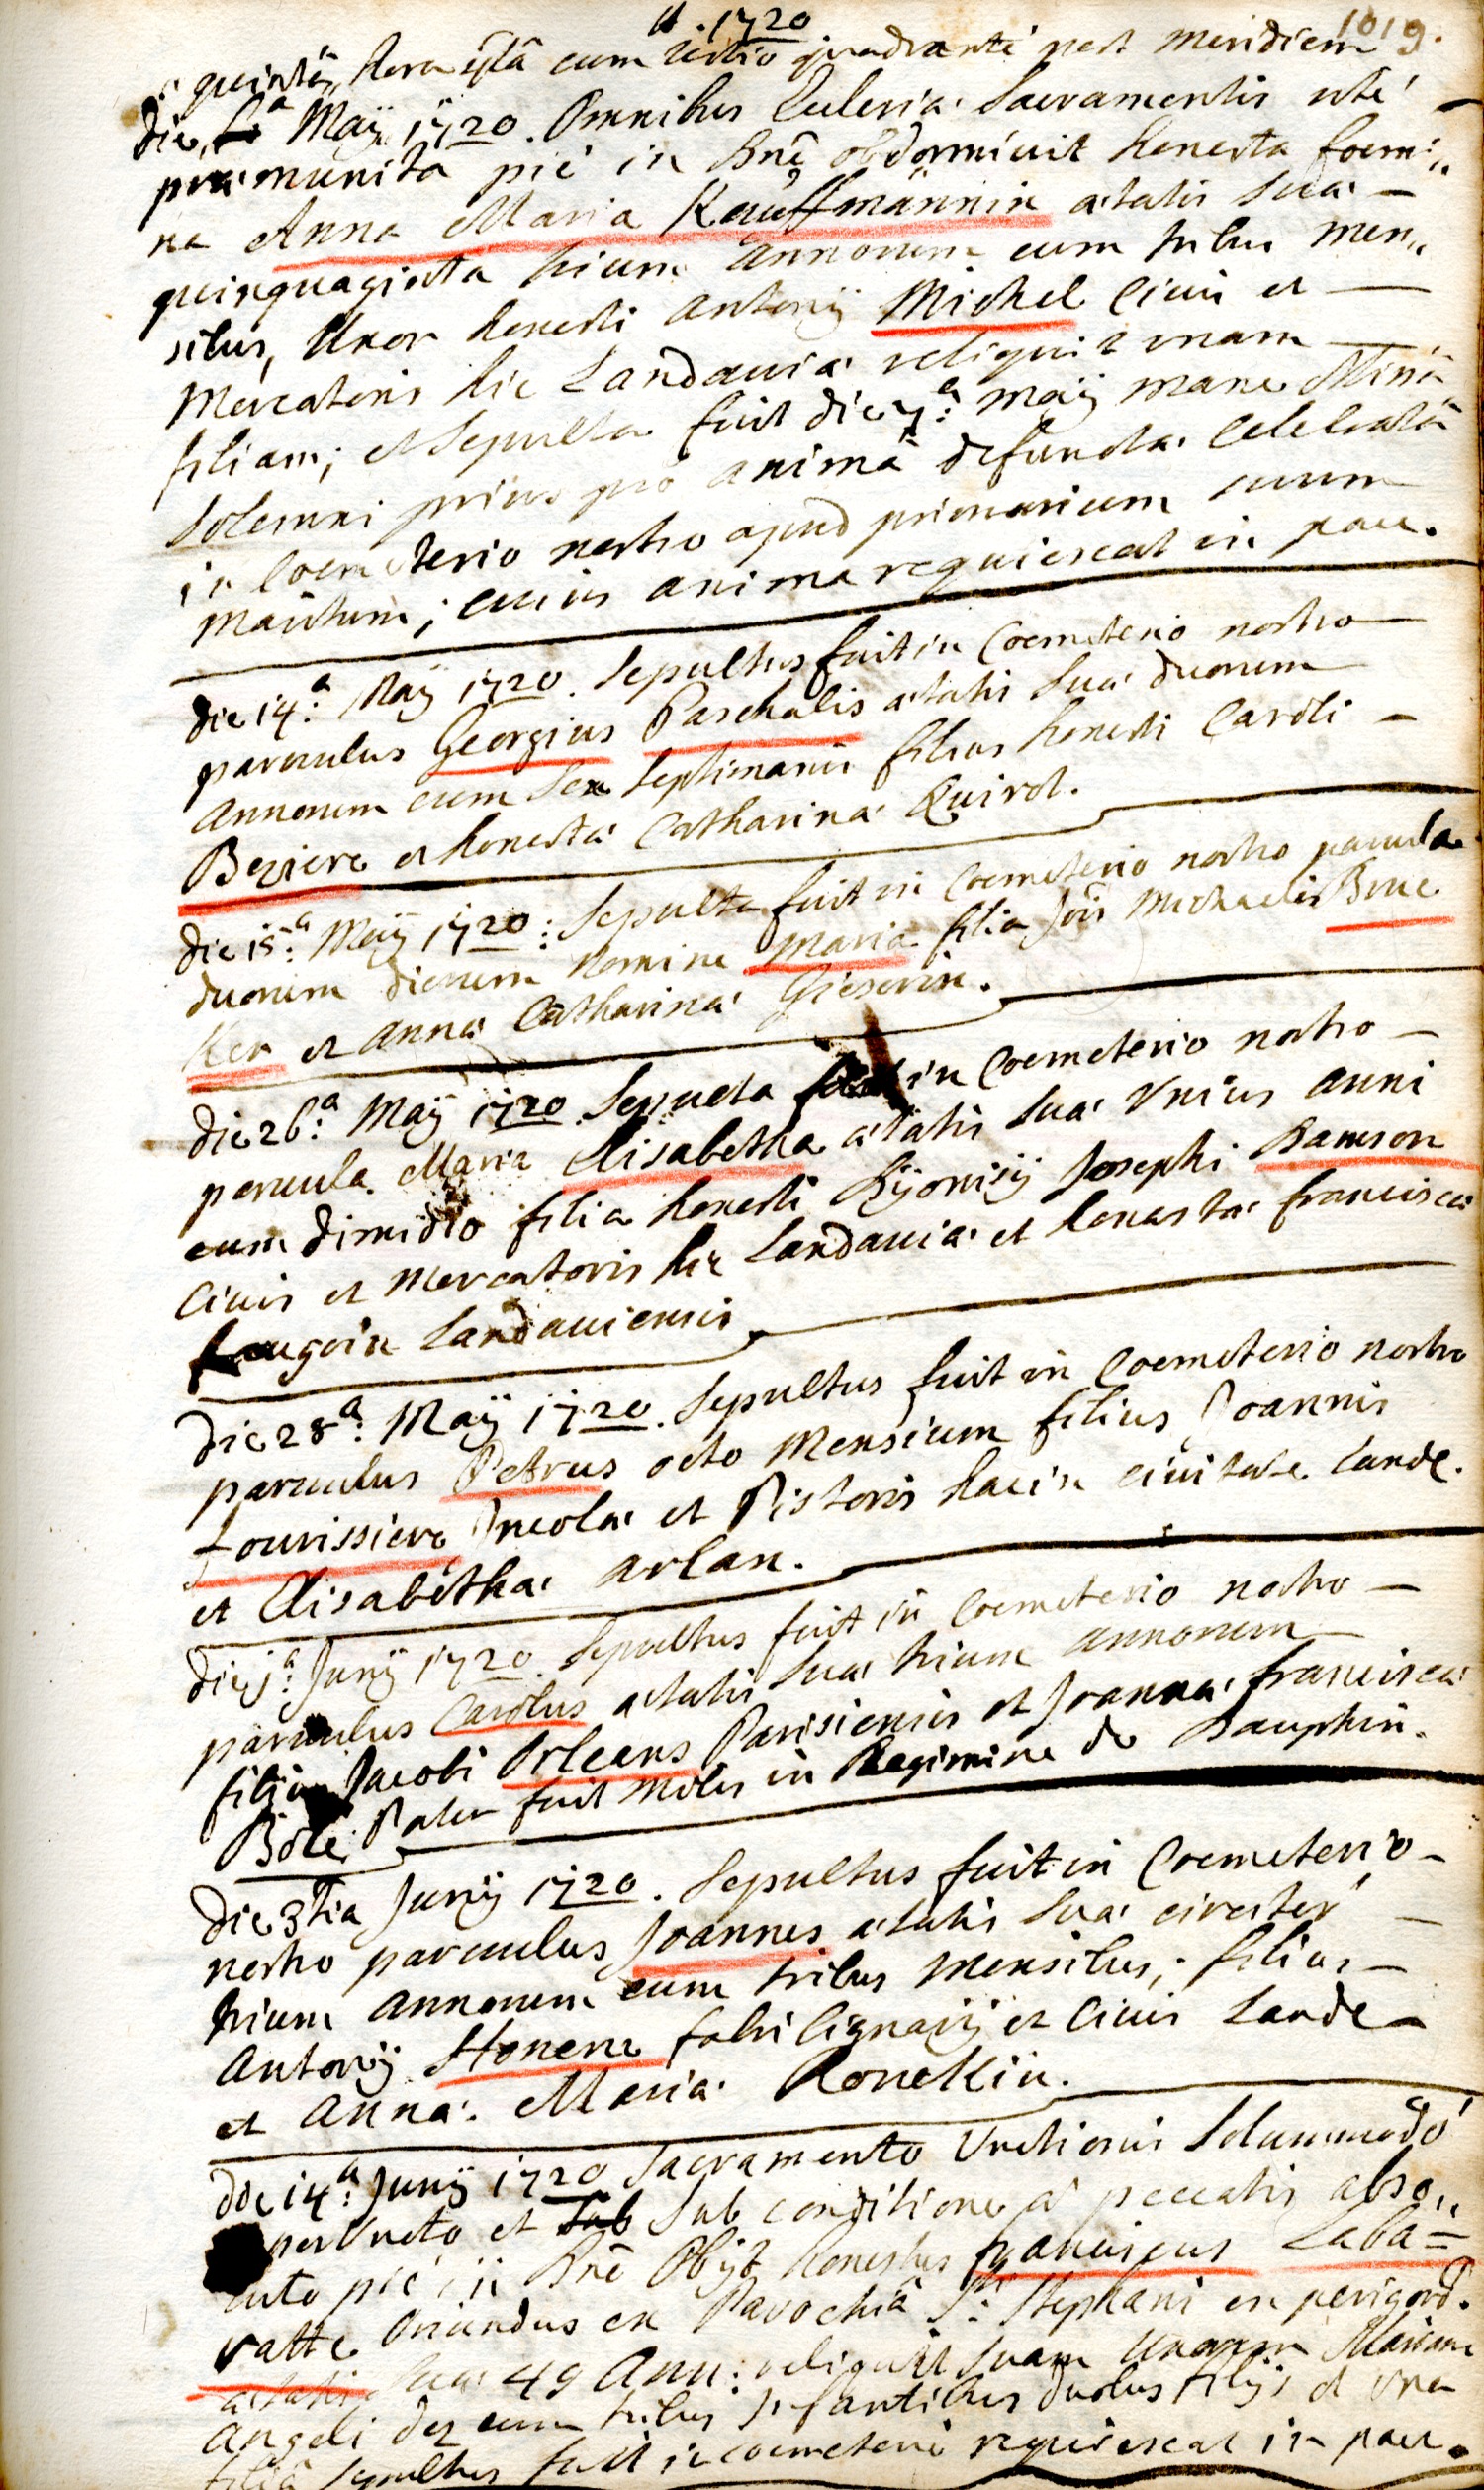 A. 1720
1019.
quintâ, hora sextâ cum tertio quadrante post meridiem
die, Maÿ 1720. Omnibus Ecclesiæ Sacramentis ritè
præmunita piè in Dnō obdormivit honesta foemi„
na Anna Maria Kauffmännin ætatis Suæ –
quinquaginta trium Annorum cum tribus men„
sibus, Uxor honesti Antonÿ Michel Civis et —
Mercatoris hic Landaviæ reliquit unam —
filiam; et Sepulta fuit die 7a: Maÿ mane Missâ
Solemni prius pro animâ defunctæ Celebratâ
in Coemeterio nostro apud primarium suum
Maritum; cuius anima requiescat in pace.
Die 14a: Maÿ 1720. Sepultus fuit in Coemeterio nostro
parvulus Georgius Paschalis ætatis Suæ duorum
Annorum cum Sex Septimanis filius honesti Caroli –
Beziere et honestæ Catharinæ Quirot.
die 15a: Maÿ 1720: Sepulta fuit in Coemeterio nostro parvula
duorum dierum Nomine Maria filia Jōis Michaelis Bruc
Ker et Annæ Catharinæ Gieserin.
die 26a: Maÿ 1720 Sepulta fuit in Coemeterio nostro –
parvula Maria Elisabetha ætatis Suæ Unius Anni
cum dimidio filia honesti Dÿonisÿ Josephi Damson
Civis et Mercatoris hic Landaviæ et honestæ Franciscæ
Landaviensis
Die 28a: Maÿ 1720. Sepultus fuit in Coemeterio nostro
parvulus Petrus octo Mensium filius Joannis
Fourissiere Incolæ et Pistoris hac in civitate Land.
et Elisabethæ Arlan.
die 1a: Junÿ 1720. Sepultus fuit in Coemeterio nostro –
parvulus Carolus ætatis Suæ trium annorum
filius Jacobi Orleans Parisiensis et Joannæ Franciscæ
Bole Pater fuit Miles in Regimine de Dauphin.
Die 3tia Junÿ 1720. Sepultus fuit in Coemeterio –
nostro parvulus Joannes ætatis Suæ circiter –
trium Annorum cum tribus Mensibus; filius –
Antonÿ Honere fabri lignarÿ et Civis Land
et Annæ Mariæ Roneckin.
die 14a: Junÿ 1720 Sacramento Unctionis Solummodò
perUncto et Sub Sub conditione à peccatis abso„
luto piè in Dnō Obÿt honestus Franciscus Laba=
ratte Oriundus ex Parochiâ Sti: Stephani en perigord.
ætatis Suæ 49 Ann: reliquit Suam Uxorem Mariam
Angeli dez cum tribus Infantibus duobus filÿs et Una
filiâ Sepultus fuit in coemeterio requiescat in pace.